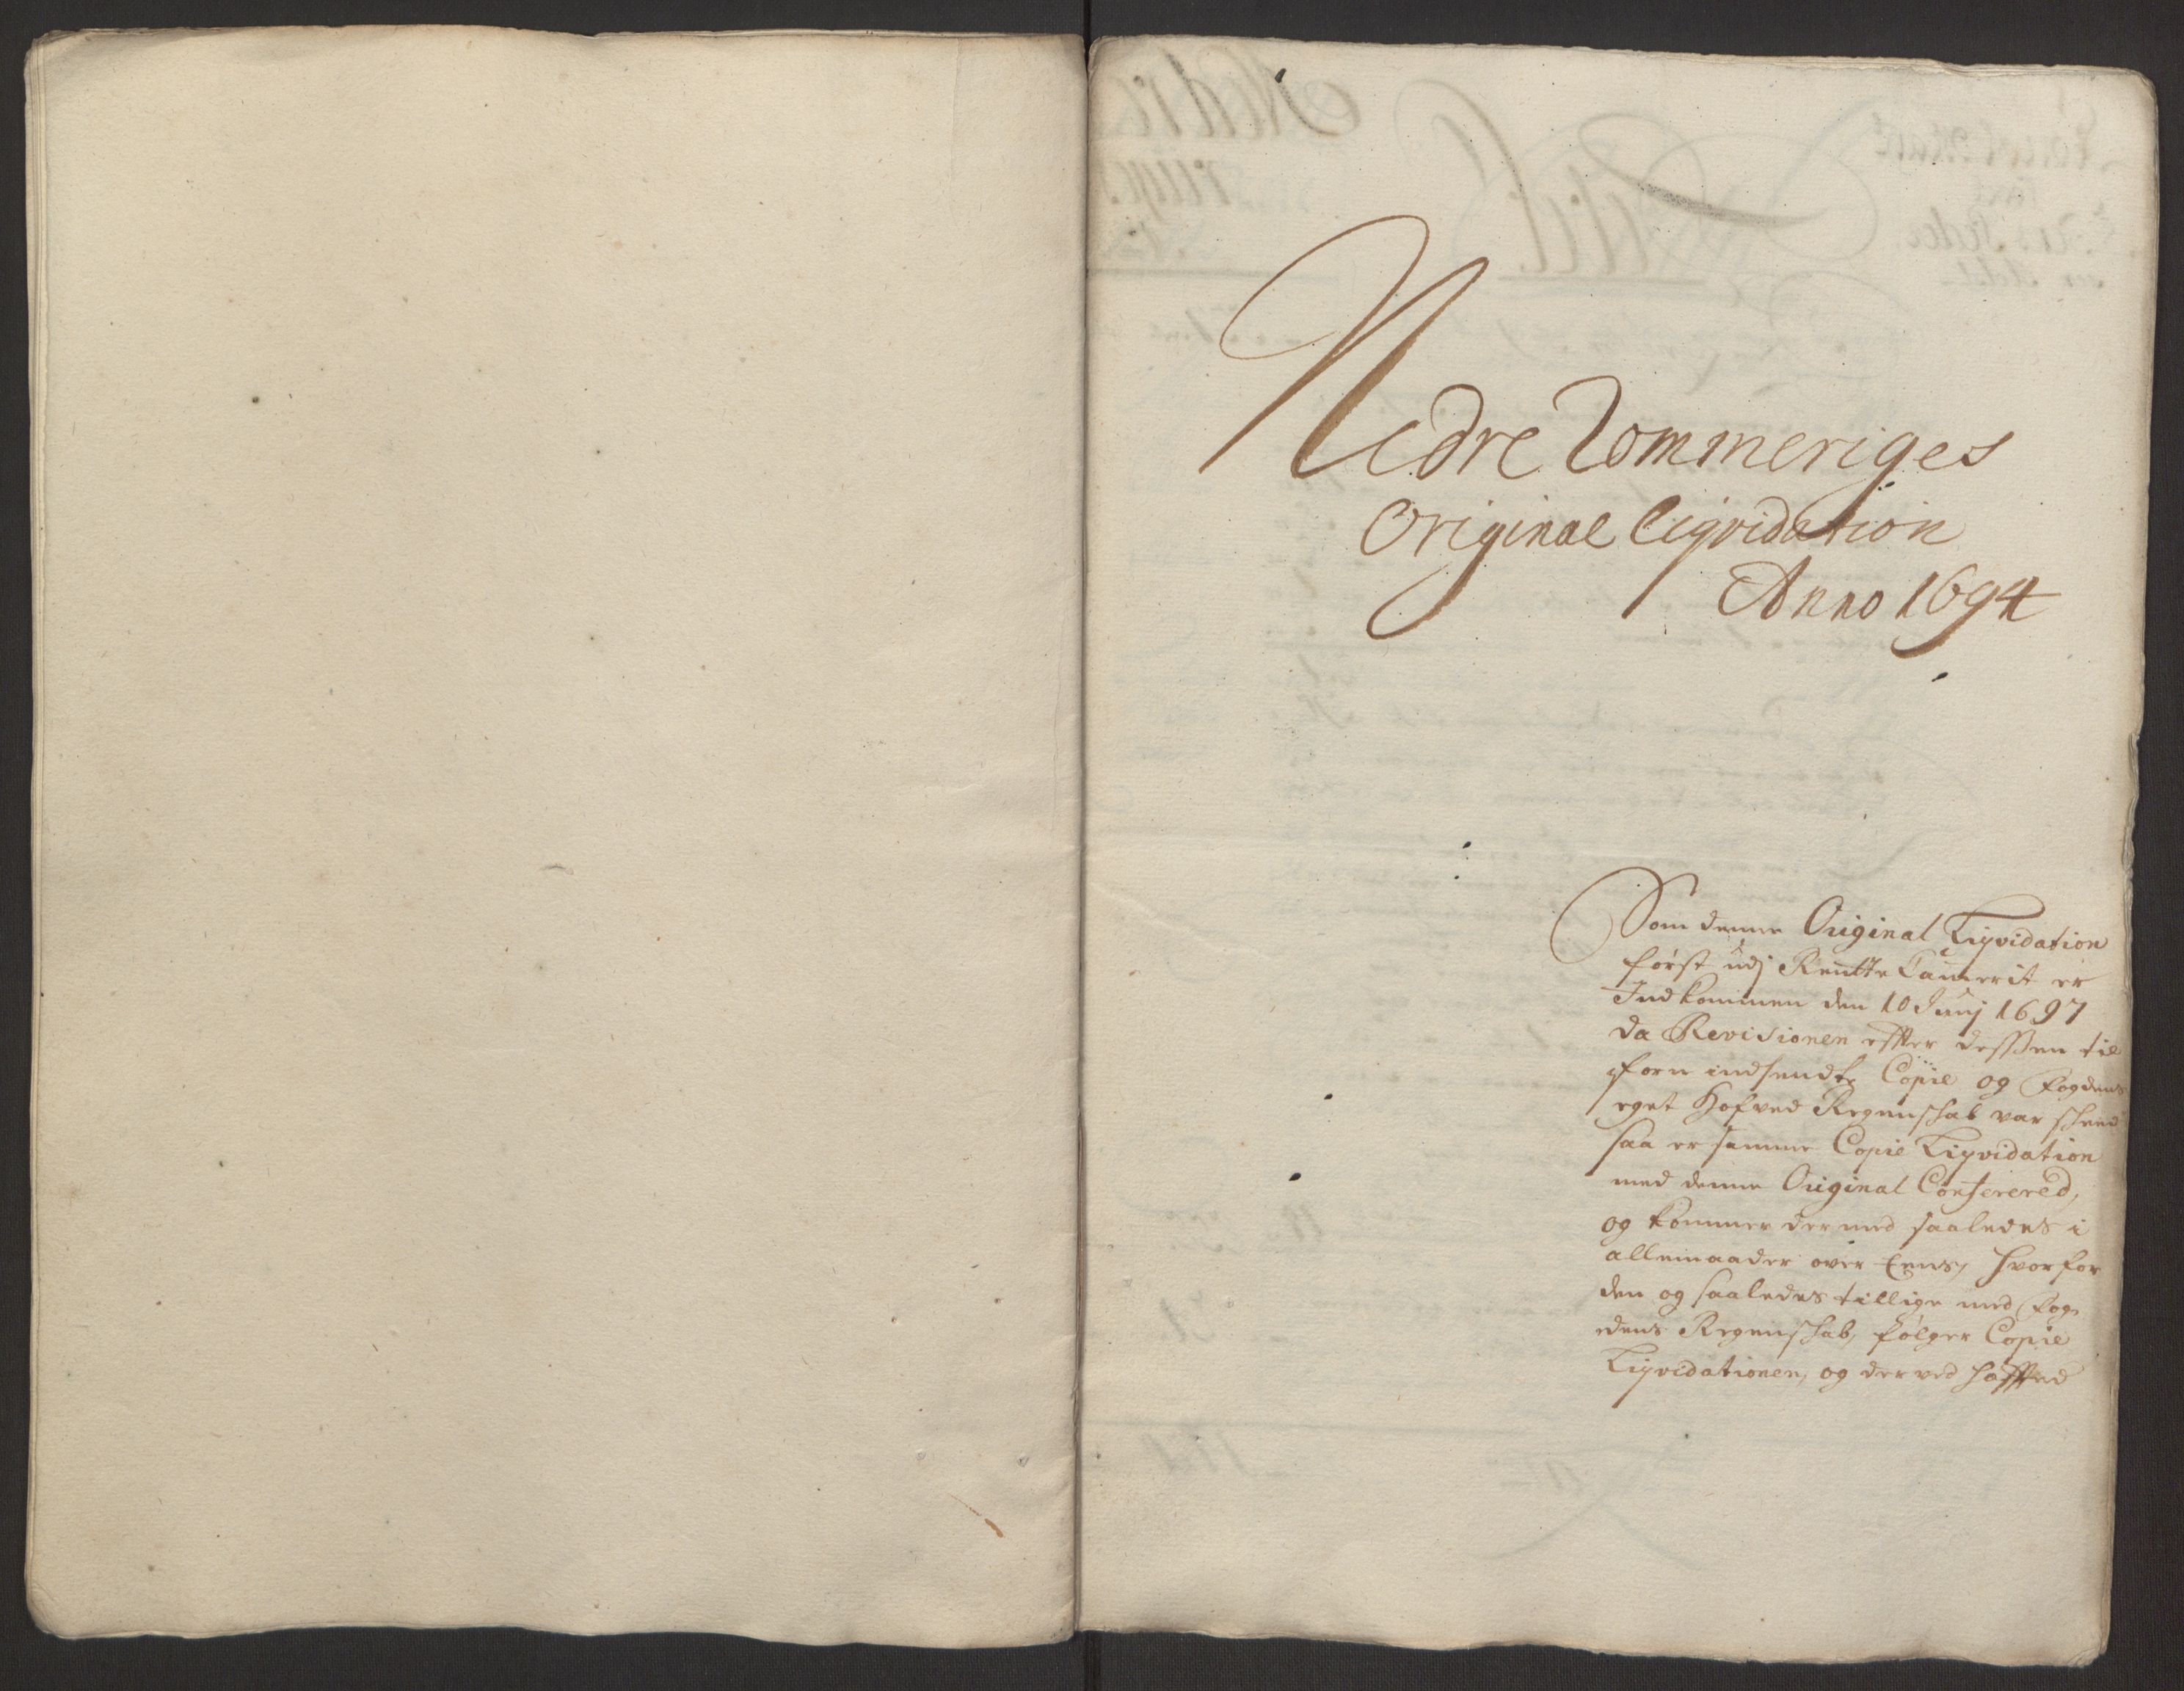 Nedre Rommeriges
Original liqvidation
Anno 1694
Som denne Original Liqvidation
først udj Rentte Camerit er
Indkommen den 10 Junj 1697
da Revisionen effter desßen til
forn indsendte Copie og Fogdens
eget Hofved Regenschab var scheed
saa er samme Copie Liqvidation
med denne Original Conferered,
og kommer der med saaledes i
allemaader over Eens, hvorfor
den og saaledes tillige med Fog
dens Regenschab, følger Copie
Liqvidationen, og der ved hæffted